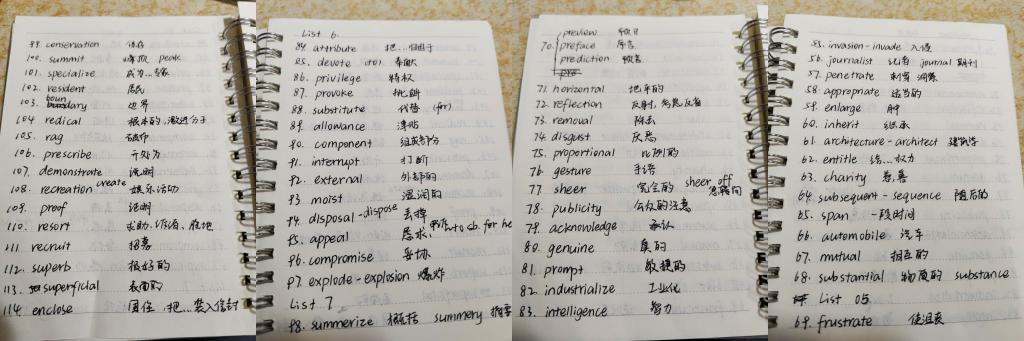 99. conservation 保存
100. summit 峰顶 peak
101. specialize 成为…专家
102. resident 居民
103. boundary 边界
104 redical 根本的,激进分子
105. rag 破布
106. prescribe 开处方
107. demonstrate 说明
108. recreation create 娱乐活动
109. proof 证明
110. resort 求助,诉诸,
111. recruit 招募
112. superb 极好的
113. superficial 表面的
114 enclose 围住,把…装入信封
List 6.
84. attribute 把…归因于
85. devote (to) 奉献
86. privilege 特权
87. provoke 挑衅
88. substitute 代替 (for)
89. allowance 津贴
90. component 组成部分
91. interrupt 打断
92. external 外部的
93. moist 湿润的
94. disposal-dispose 丢掉
95. appeal 恳求, to sb. for he
96. compromise 妥协
97. explode-explosion 爆炸
List 7
98. summerize 概括 summery 摘要
preview 预习
70. preface 序言
prediction 预言
71. horizontal 地平的
72. reflection 反射,
73. removal 除去
74. disgust 厌恶
75. proportional 比例的
76. gesture 手语
77. sheer 完全的 sheer off
78. publicity 公众的注意
79. acknowledge 承认
80. genuine 真的
81. prompt 敏捷的
82. industrialize 工业化
83. intelligence 智力
55. invasion-invade 入侵
56. journalist 记者 journal 期刊
57. penetrate 刺穿 洞察
58. appropriate 适当的
59. enlarge
60. inherit 继承
61. architecture-architect 建筑学
62. entitle 给…权力
63. charity 慈善
64. subsequent-sequence 随后的
65. span 一段时间
66. automobile 汽车
67. mutual 相互的
68. substantial 物质的 substance
List 05
69. frustrate 使沮丧